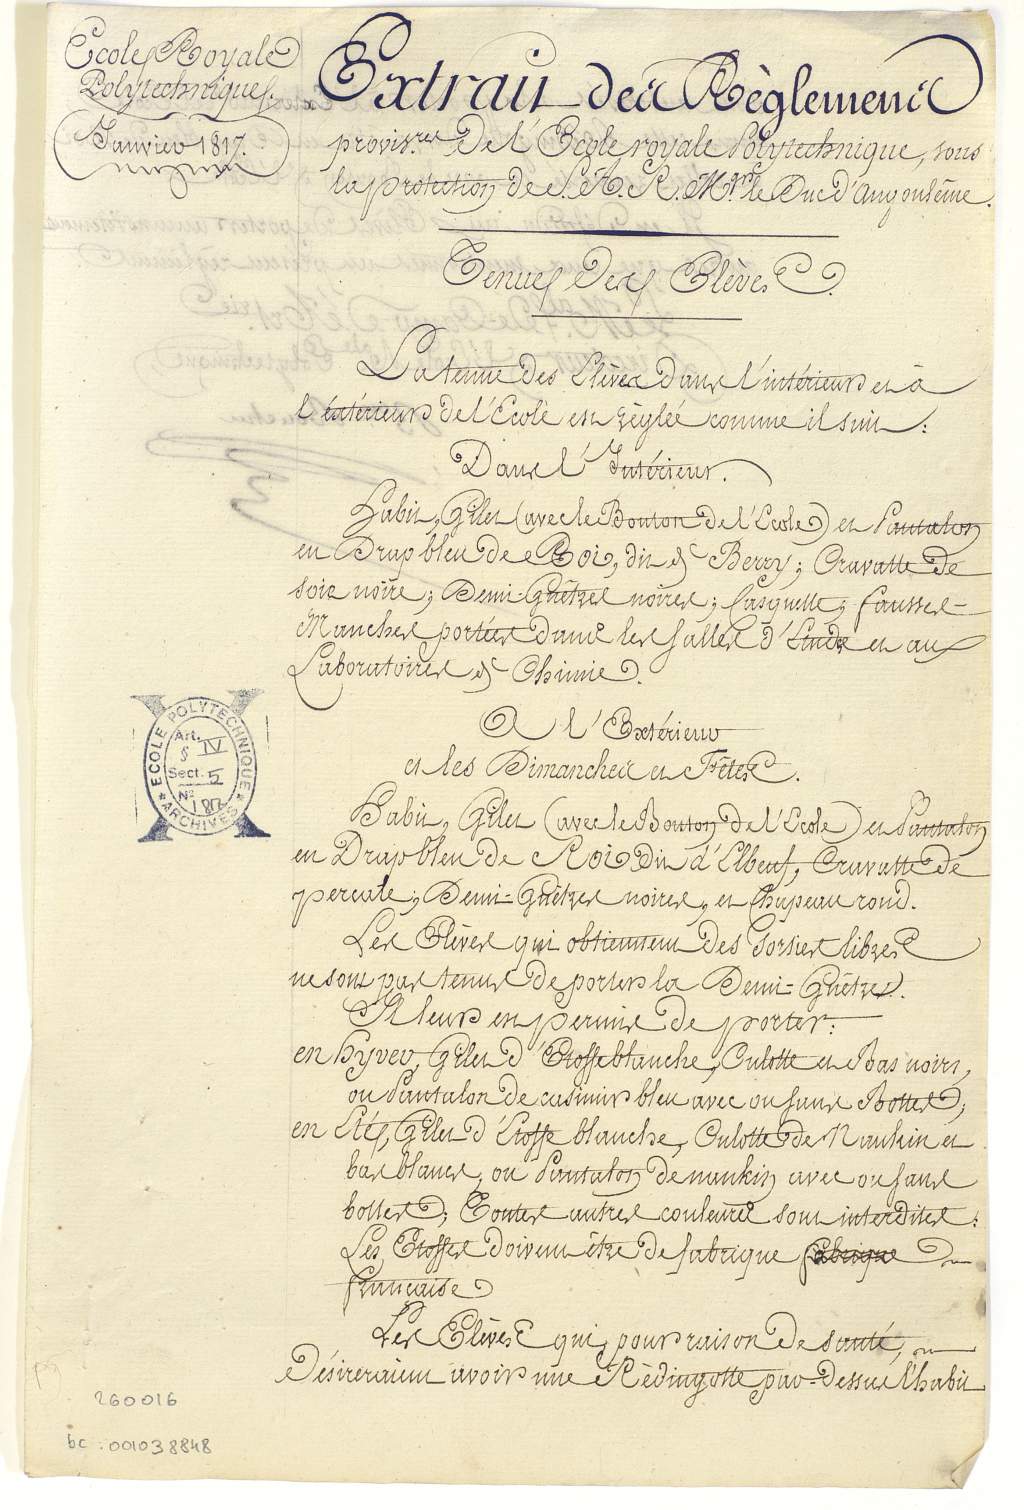 Ecole Royale
Polytechnique.
Janvier 1817.
Extrait des Règlemens
provis.res de l'Ecole royale Polytechnique, sous
la protection de S. A. R. M.gr le Duc d'Angoulême.
Tenue des Elèves.
La tenue des Elèves dans l'intérieur et à
l'extérieur de l'Ecole est règlée comme il suit:
Dans l'Intérieur.
Habit, Gilet (avec le Bouton de l'Ecole) et Pantalon
en Drap bleu de Roi, dit de Berry; Cravatte de
soie noire; Demi-Guêtres noires; Casquette; fausses-
Manches portées dans les salles d'Etude et aux
Laboratoires de Chimie.
A l'Extérieur
et les Dimanches et Fêtes.
Habit, Gilet (avec le Bouton de l'Ecole) et Pantalon
en Drap bleu de Roi dit d'Elbeuf, Cravatte de
percale; Demi-Guêtres noires, et Chapeau rond.
Les Elèves qui obtiennent des Sorties libres
ne sont pas tenus de porter la Demi-Guêtre.
Il leur est permis de porter:
en hyver, Gilet d'Etoffe blanche, Culotte et Bas noirs,
ou Pantalon de casimir bleu avec ou sans Bottes;
en Eté, Gilet d'Etoffe blanche, Culotte de Nankin et
bas blancs, ou Pantalon de nankin avec ou sans
bottes; Toutes autres couleurs sont interdites:
Les Etoffes doivent être de fabrique fabrique
française
Les Elèves qui, pour raison de santé,
désireraient avoir une Rédingotte par-dessus l'habit
ECOLE POLYTECHNIQUE
Art. IV
§
Sect. 5
N° 1817
ARCHIVES
260016
bc : 001038848